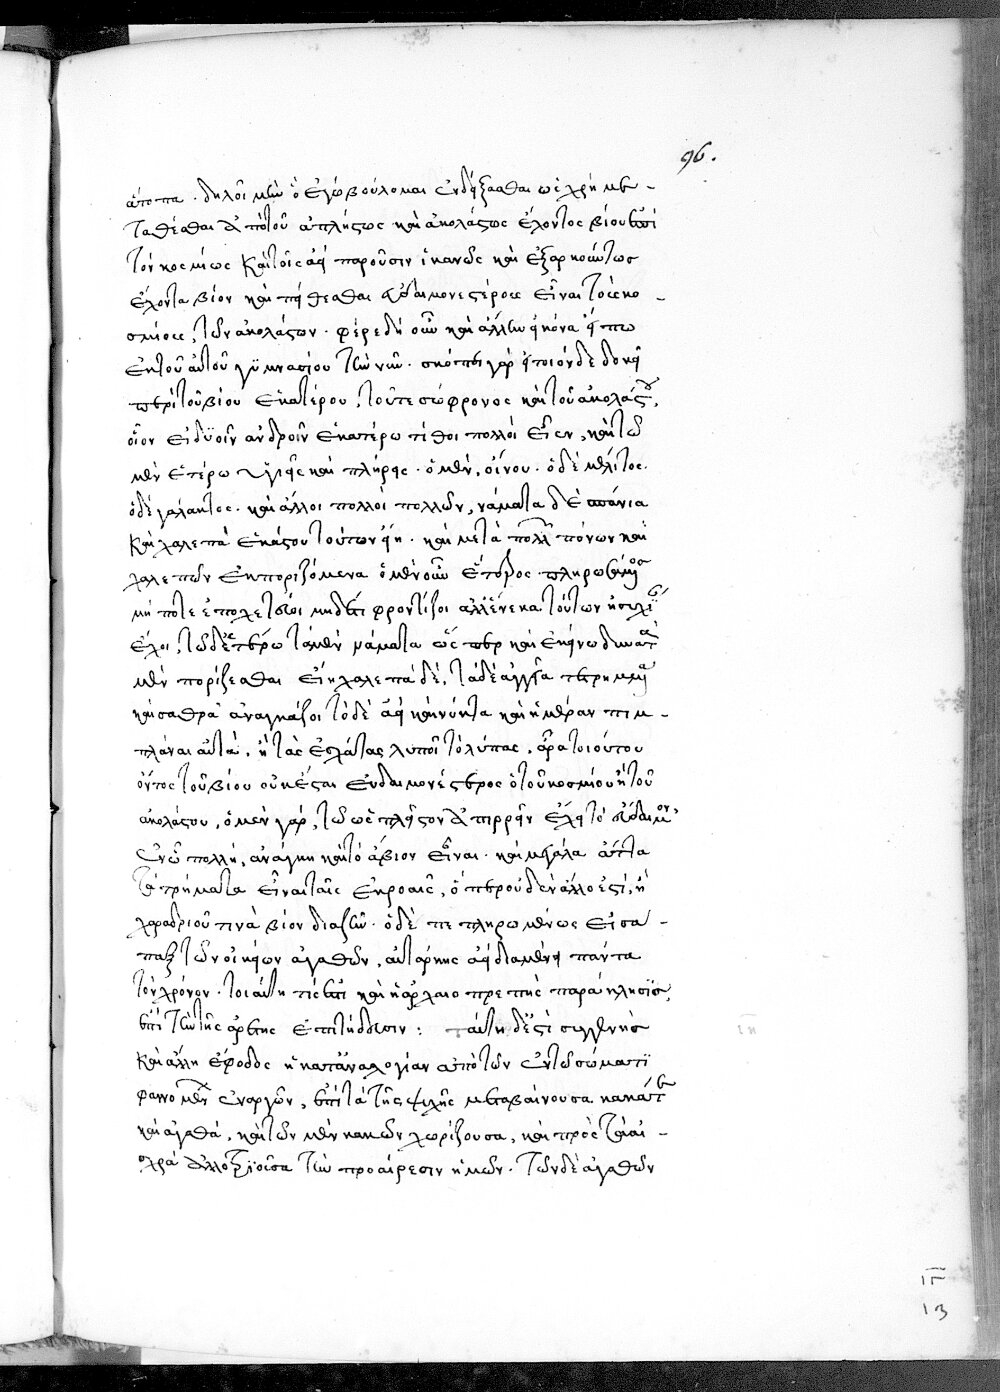 96.
ἄτοπα. δηλοῖ μὴν ὃ ἐγὼ βούλομαι ἐνδείξασθαι ὡς χρὴ με-
ταθέσθαι ἀπὸ τοῦ ἀπλήστως καὶ ἀκολάστως ἔχοντος βίου ἐπὶ
τὸν κοσμίως καὶ τοῖς ἀεὶ παροῦσιν ἱκανῶς καὶ ἐξαρκούντως
ἔχοντα βίον καὶ πείθεσθαι εὐδαιμονεστέρους εἶναι τοὺς κο-
σμίους, τῶν ἀκολάστων. φέρε δὴ οὖν καὶ ἄλλην εἰκόνα εἴπω
ἐκ τοῦ αὐτοῦ γυμνασίου τὴν νῦν. σκόπει γὰρ εἰ τοιόνδε δοκεῖ
περὶ τοῦ βίου ἑκατέρου, τοῦ τε σώφρονος καὶ τοῦ ἀκολάστου,
οἷον εἰ δυοῖν ἀνδροῖν ἑκατέρω πίθοι πολλοὶ εἶεν, καὶ τῶ
μὲν ἑτέρω ὑγιεῖς καὶ πλήρεις. ὁ μὲν, οἴνου. ὁ δὲ μέλιτος.
ὁ δὲ γάλακτος. καὶ ἄλλοι πολλοὶ πολλῶν, νάματα δὲ σπάνια
καὶ χαλεπὰ ἑκάστου τούτων εἴη. καὶ μετὰ πολλῶν πόνων καὶ
χαλεπῶν ἐκποριζόμενα ὁ μὲν οὖν ἕτερος πληρωσάμενος
μήποτε ἐποχετεύοι μηδέ τι φροντίζοι ἀλλ' ἕνεκα τούτων ἡσυχίαν
ἔχοι, τῶ δὲ ἑτέρω τὰ μὲν νάματα ὥσπερ καὶ ἐκείνω δυνατὰ
μὲν πορίζεσθαι εἴη χαλεπὰ δὲ, τὰ δὲ ἀγγεῖα τετρημένα
καὶ σαθρὰ ἀναγκάζοι τὸ δὲ ἀεὶ καὶ νύκτα καὶ ἡμέραν πιμ-
πλάναι αὐτὰ, ἢ τὰς ἐσχάτας λυποῖτο λύπας. ἆρα τοιούτου
ὄντος τοῦ βίου οὐκ ἔσται εὐδαιμονέστερος ὁ τοῦ κοσμίου ἢ τοῦ
ἀκολάστου, ὁ μὲν γὰρ, τῶ ὡς πλεῖστον ἐπιρρεῖν ἔχει τὸ εὔδαιμον,
ἐν ᾧ πολλὴ, ἀνάγκη καὶ τὸ ἄβιον εἶναι. καὶ μεγάλα ἄττα
τὰ τρήματα εἶναι ταῖς ἐκροαῖς, ὅπερ οὐδὲν ἄλλο ἐστὶ, ἢ
χαραδριοῦ τινὰ βίον διαζῆν. ὁ δὲ πεπληρωμένως εἰσά-
παξ τῶν οἰκείων ἀγαθῶν, αὐτάρκης ἀεὶ διαμένει πάντα
τὸν χρόνον. τοιαύτη τίς ἐστι καὶ ἡ ἀρχαιοπρεπὴς παράκλησις,
ἐπὶ τὴν τῆς ἀρετῆς ἐπιτήδευσιν: ταύτη δ' ἐστὶ συγγενὴς
καὶ ἄλλη ἔφοδος ἡ κατ' ἀναλογίαν ἀπὸ τῶν ἐν τῶ σώματι
φαινομένων ἐναργῶν, ἐπὶ τὰ τῆς ψυχῆς μεταβαίνουσα κακά τε
καὶ ἀγαθὰ, καὶ τῶν μὲν κακῶν χωρίζουσα, καὶ πρὸς τὰ αἰ-
σχρὰ ἀλλοτριοῦσα τὴν προαίρεσιν ἡμῶν. τῶν δὲ ἀγαθῶν
13